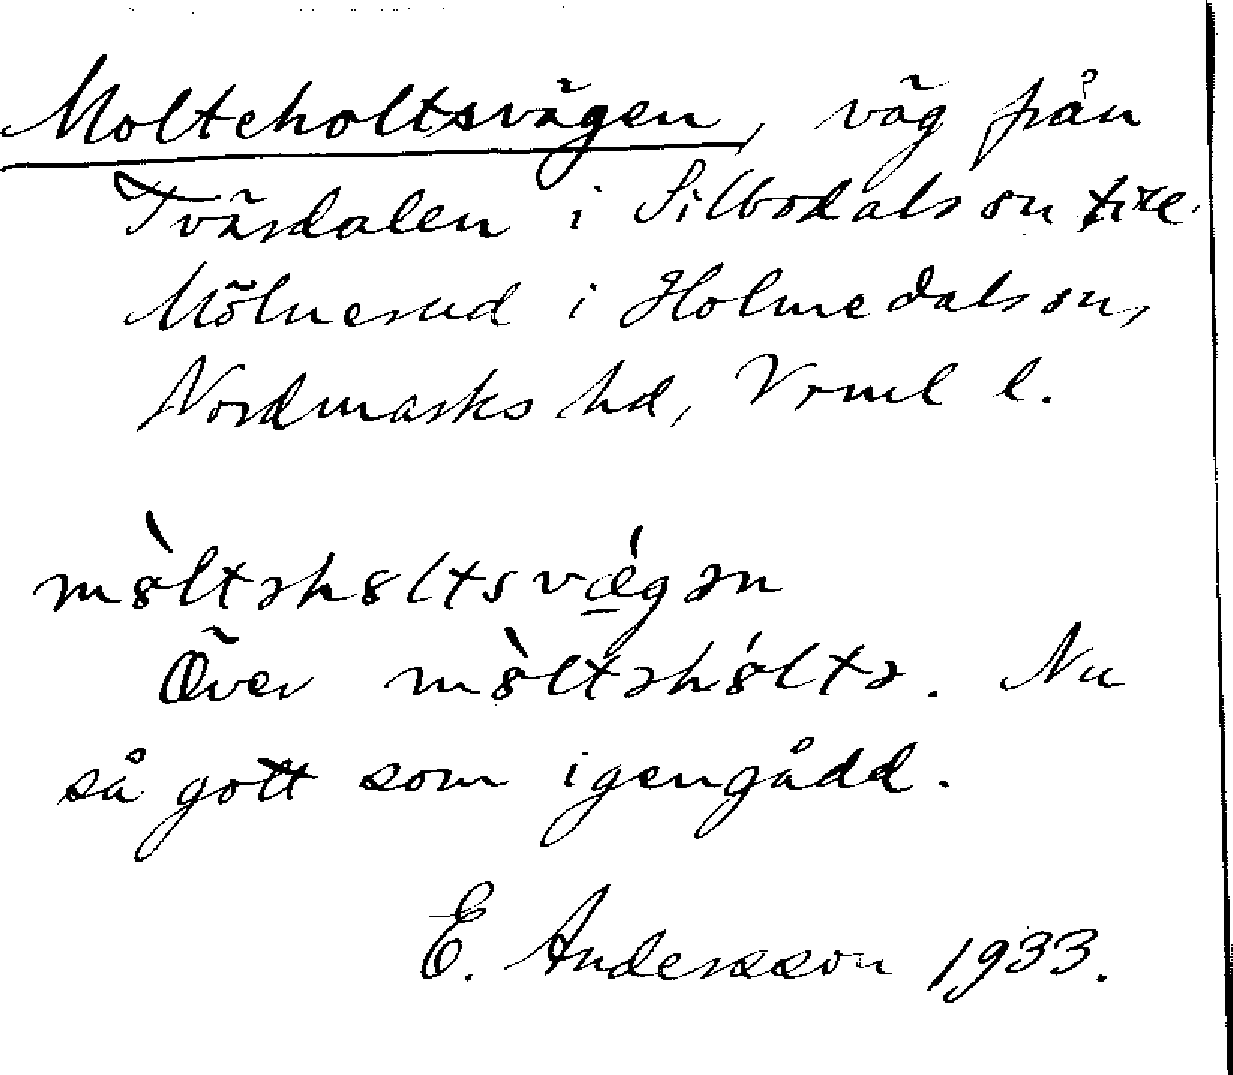 Molteholtsvägen, väg från
Tvärdalen i Silbodals sn till
Mölnerud i Holmedals sn,
Nordmarks hd, Vrml l.
mòltəhㅤltsvǽgən
Över mòltəhóltə. Nu
så gott som igengådd.
E. Andersson 1933.